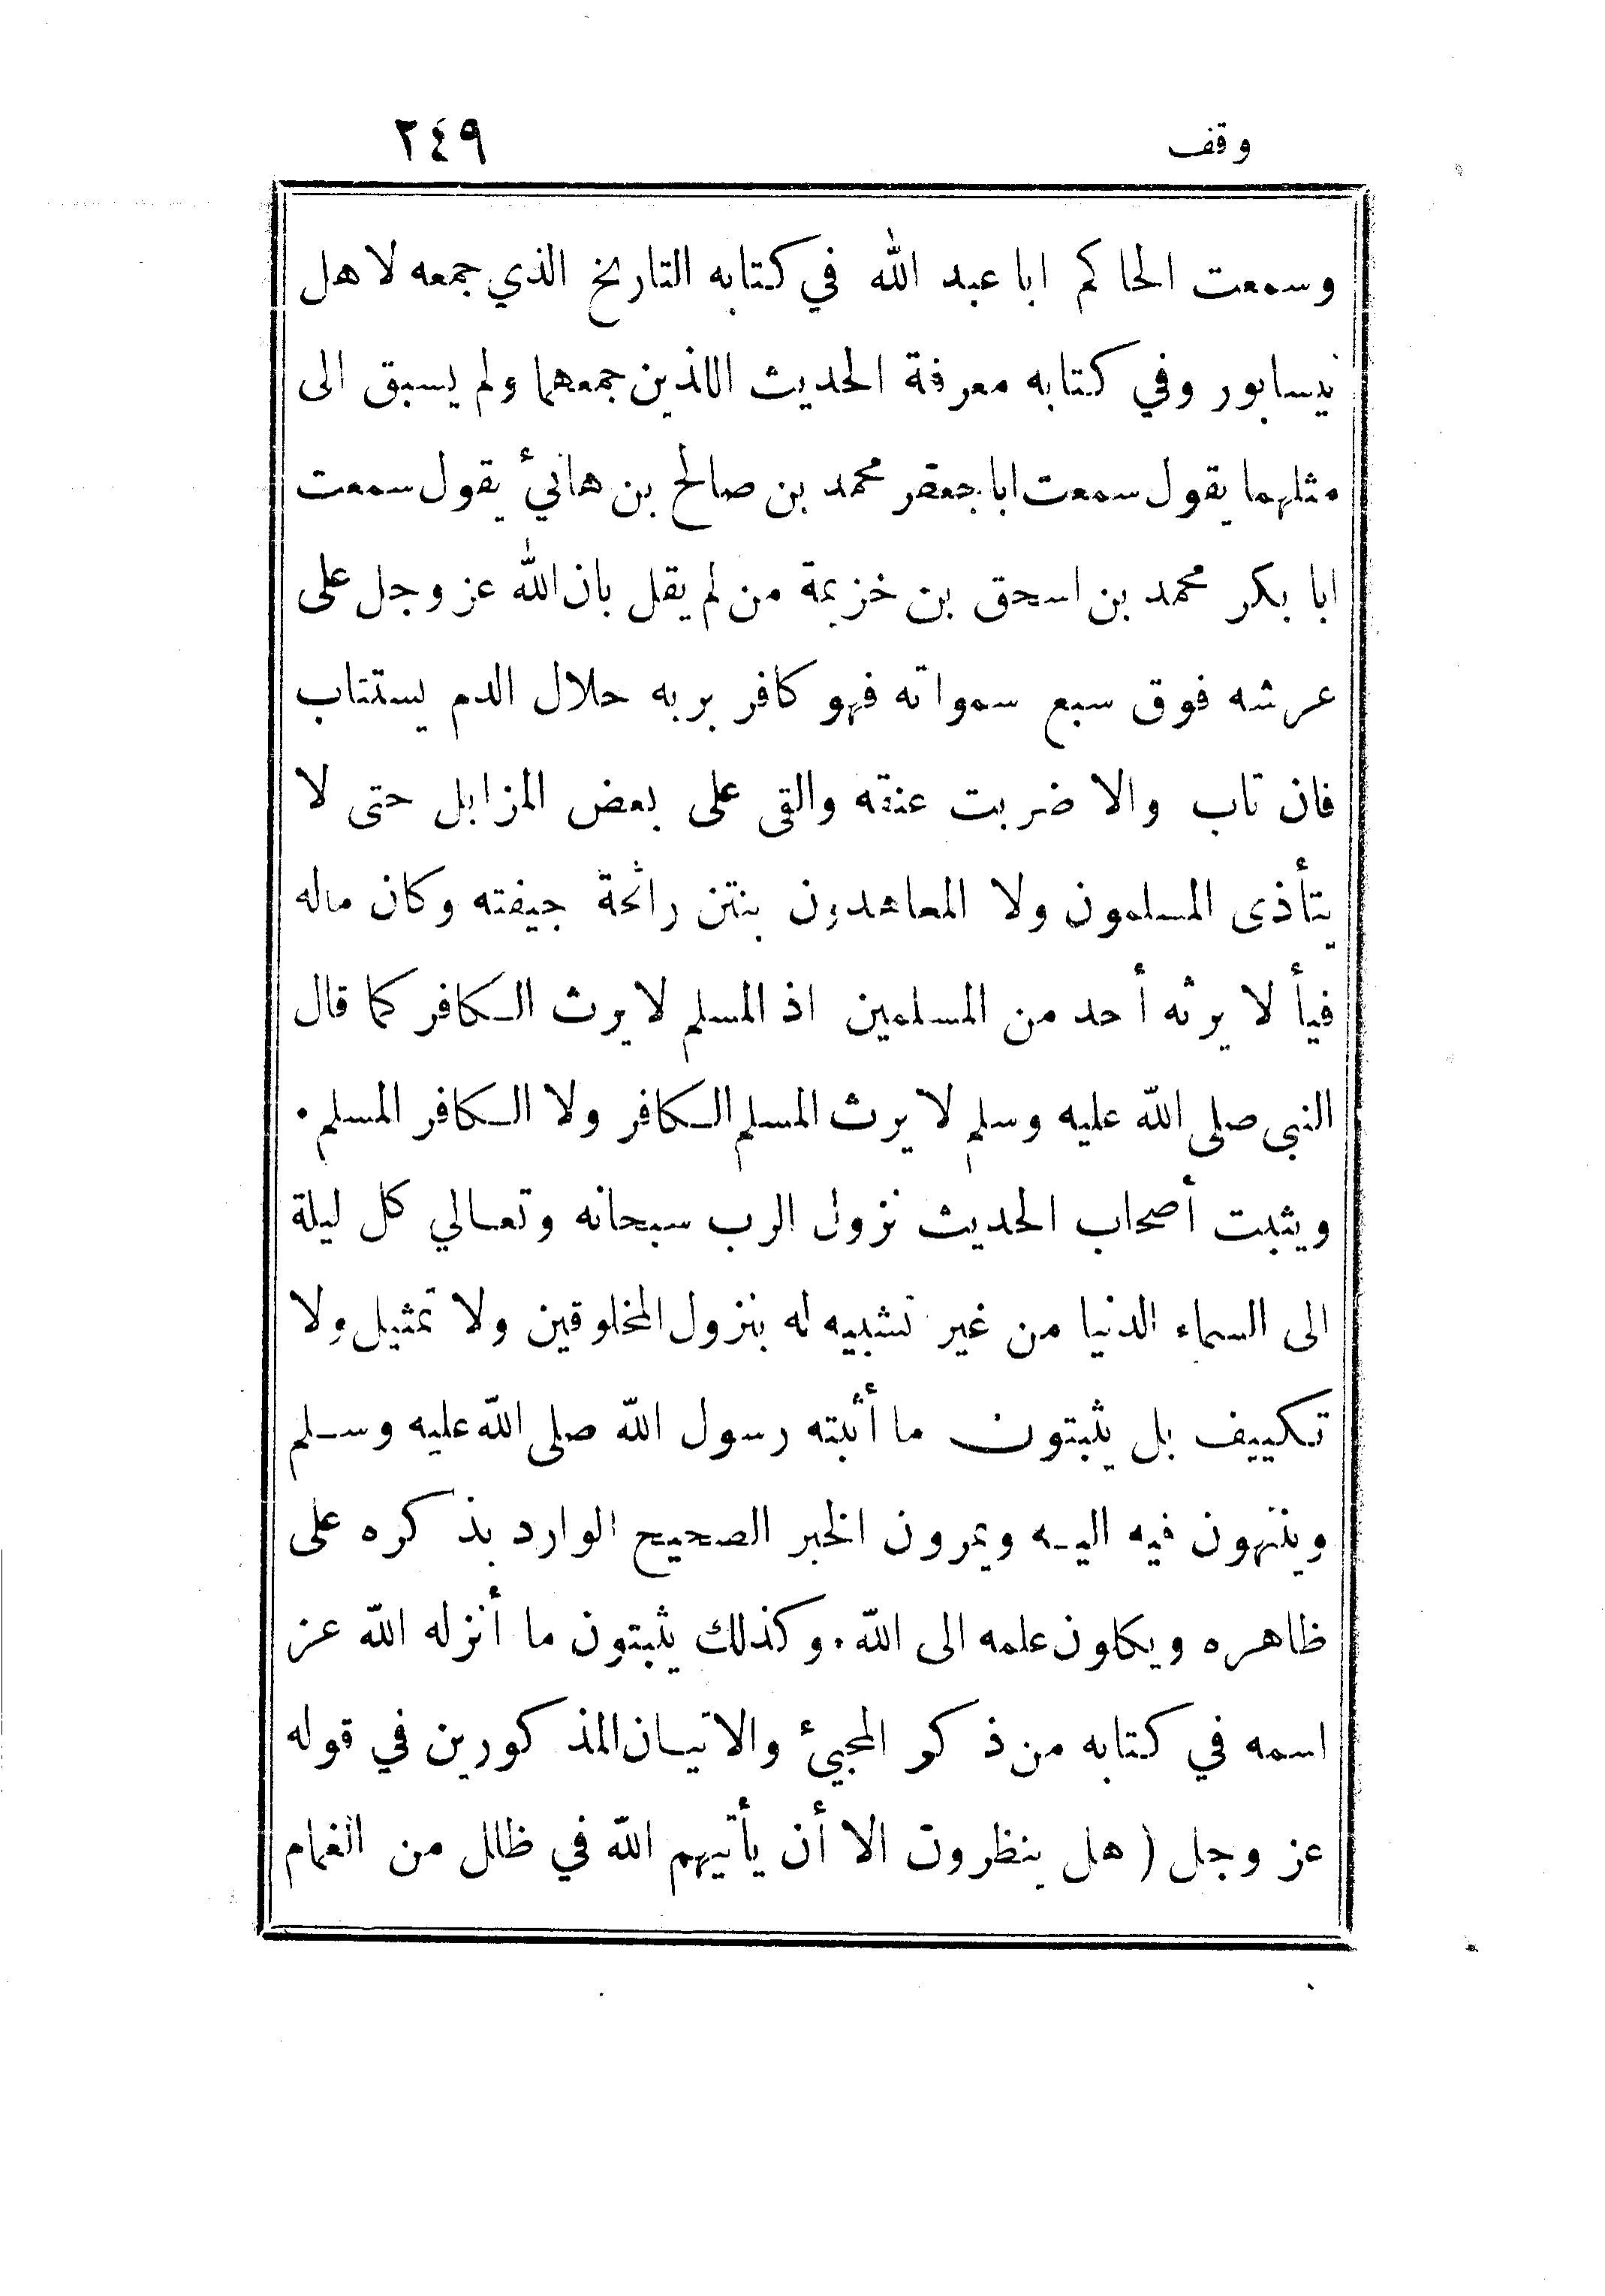 وقف ٢٤٩
وسمعت الحاكم ابا عبد الله في كتابه التاريخ الذي جمعه لاهل
نيسابور وفي كتابه معرفة الحديث اللذين جمعهما ولم يسبق الى
مثلهما يقول سمعت ابا جعفر محمد بن صالح بن هانئ يقول سمعت
ابا بكر محمد بن اسحق بن خزيمة من لم يقل بان الله عز وجل على
عرشه فوق سبع سمواته فهو كافر بربه حلال الدم يستتاب
فان تاب والا ضربت عنقه والقى على بعض المزابل حتى لا
يتأذى المسلمون ولا المعاهدون بنتن رائحة جيفته وكان ماله
فيأ لا يرثه أحد من المسلمين اذ المسلم لا يرث الكافر كما قال
النبى صلى الله عليه وسلم لا يرث المسلم الكافر ولا الكافر المسلم .
ويثبت أصحاب الحديث نزول الرب سبحانه وتعالي كل ليلة
الى السماء الدنيا من غير تشبيه له بنزول المخلوقين ولا تمثيل ولا
تكييف بل يثبتون ما أثبته رسول الله صلى الله عليه وسلم
وينتهون فيه اليه ويمرون الخبر الصحيح الوارد بذكره على
ظاهره ويكلون علمه الى الله . وكذلك يثبتون ما أنزله الله عز
اسمه في كتابه من ذكر المجيئ والاتيان المذكورين في قوله
عز وجل ( هل ينظرون الا أن يأتيهم الله في ظلل من الغمام